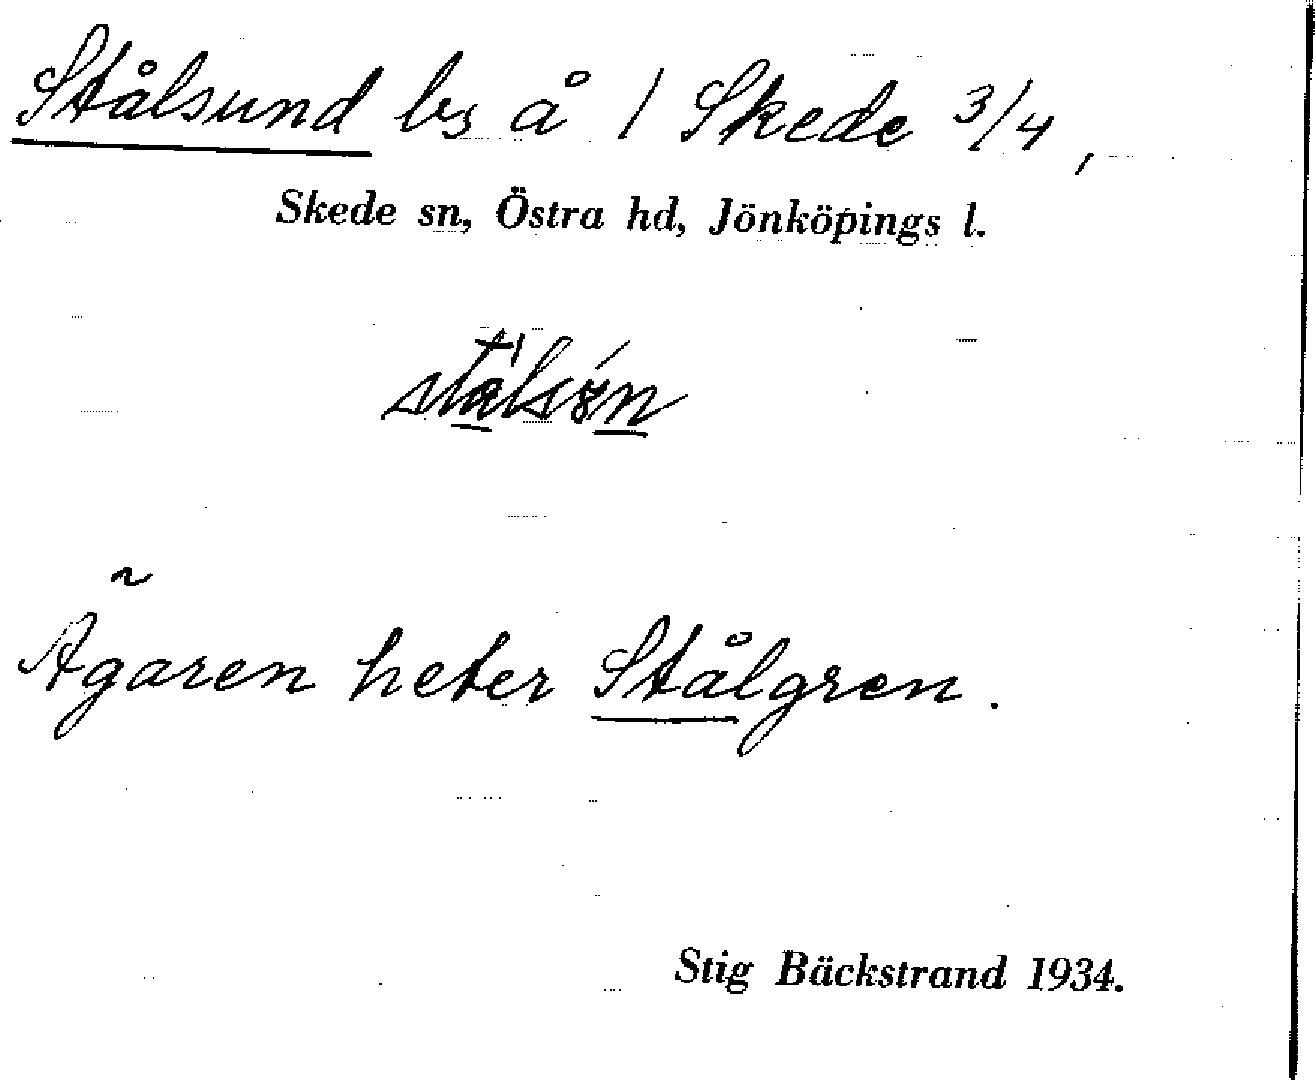 Stålsund bs å 1 Skede 3/4,
Skede sn, Östra hd, Jönköpings l.
Ägaren heter Stålgren.
Stig Bäckstrand 1934.